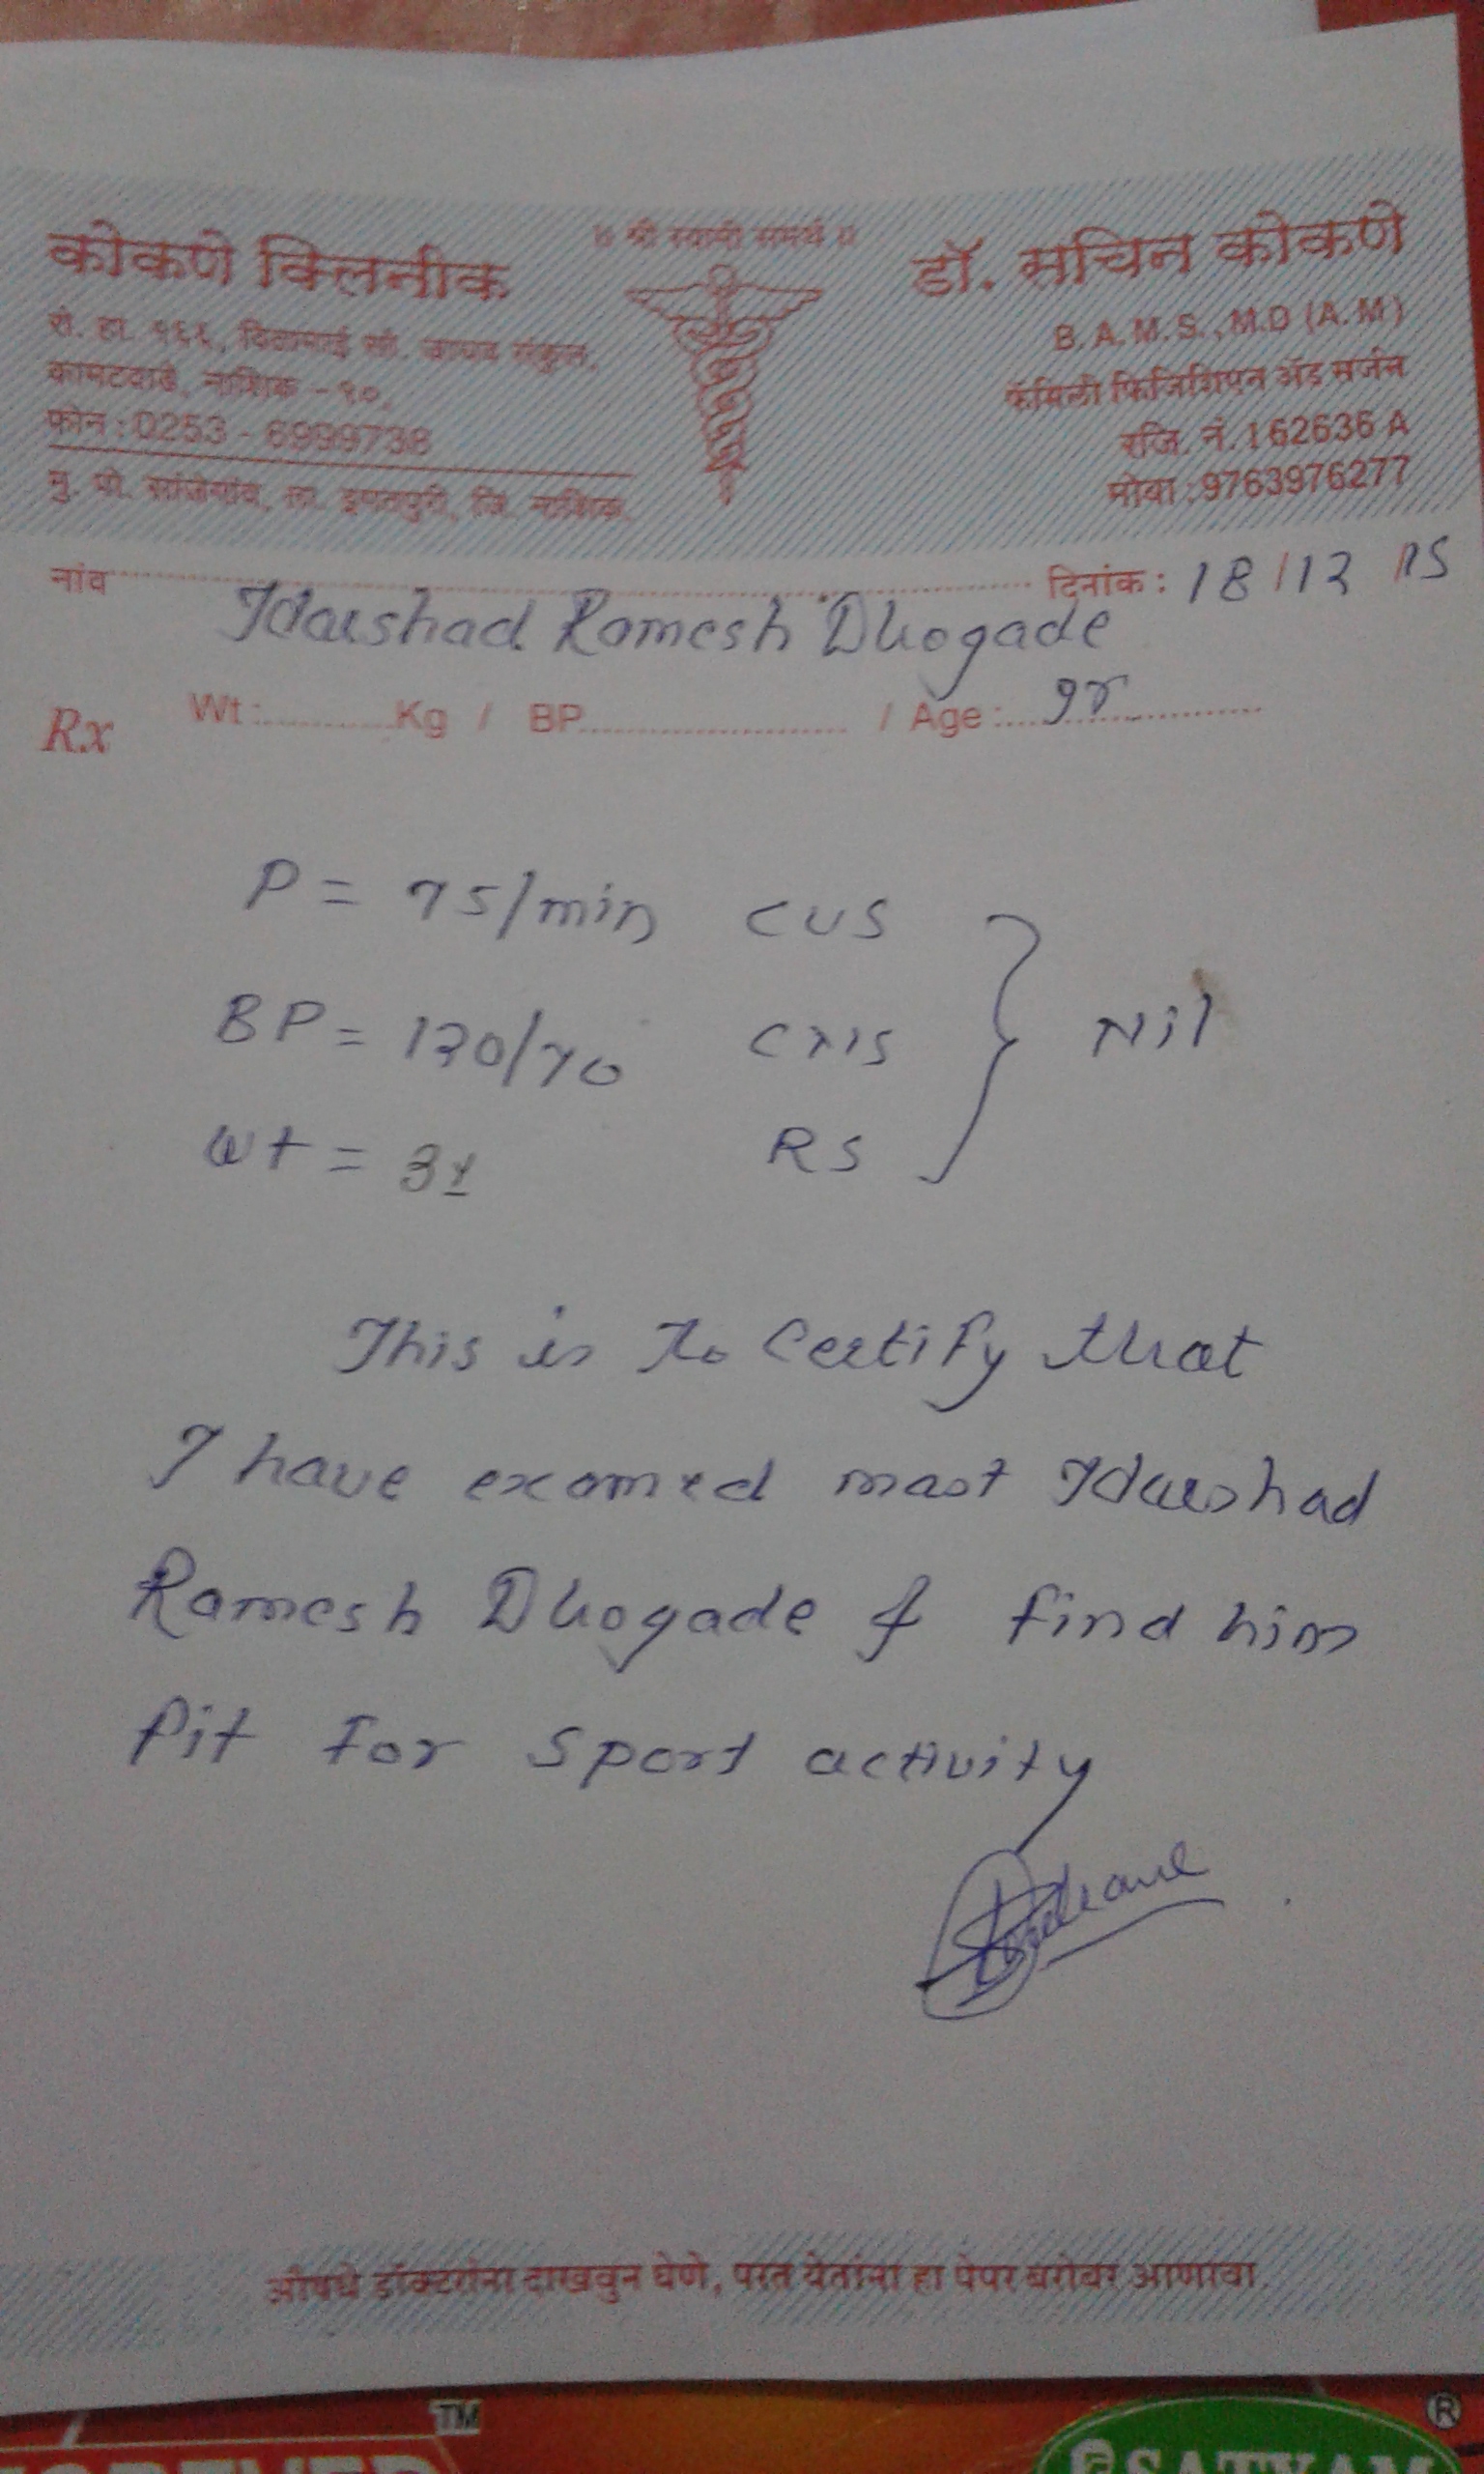 ॥ श्री स्वामी समर्थ ॥
कोकणे क्लिनीक
रो. हा. १६६, विठामाई सो. जाधव संकुल,
कामटवाडे, नाशिक - १०.
फोन : 0253 - 6999738
मु. पो. सांजेगांव, ता. इगतपुरी, जि. नाशिक.
डॉ. सचिन कोकणे
B.A.M.S., M.D (A.M)
फॅमिली फिजिशिएन ॲंड सर्जन
रजि. नं. 162636 A
मोबा : 9763976277
नांव Ramesh Dhogade दिनांक : 18/12/15
Rx Wt: Kg / BP / Age:
P = 75/min CVS
BP = 120/70 CNS } Nil
Wt = RS
This is to Certify that
I have examed mast
Ramesh Dhogade & find him
fit for sport activity
औषधे डॉक्टरांना दाखवुन घेणे, परत येतांना हा पेपर बरोबर आणावा.
TM
®
SATYAM